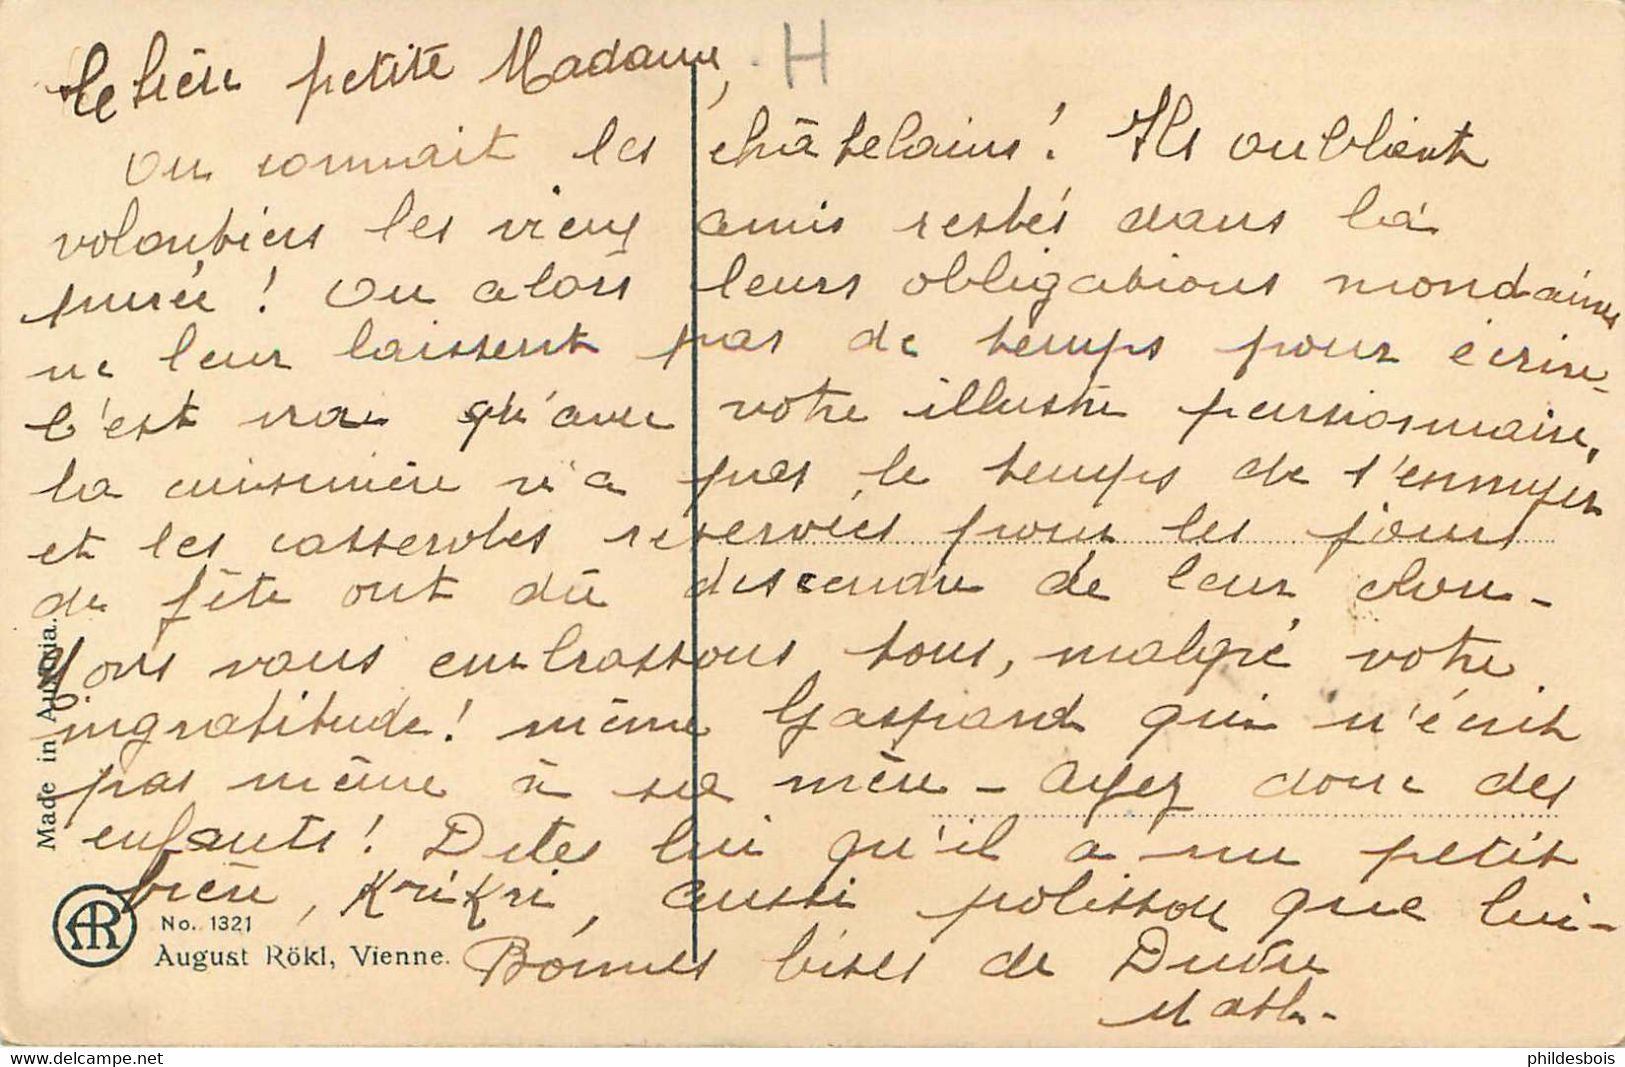 petite Madame,
H
On connait les châtelains! Ils oublient
volontiers les vieux amis restés dans la
purée! Ou alors leurs obligations mondaines
ne leur laissent pas de temps pour écrire-
C'est vrai qu'avec votre illustre pensionnaire,
la cuisinière n'a pas le temps de s'ennuyer
et les casseroles réservées pour les jours
de fête ont dû descendre de leur clou-
Nous vous embrassons tous, malgré votre
ingratitude! même Gaspard qui n'écrit
pas même à sa mère - Ayez donc des
enfants! Dites lui qu'il a un petit
frère, KriKri, aussi polisson que lui-
Bonnes bises de
Math-
Made in Austria.
AR
No. 1321
August Rökl, Vienne.
phildesbois